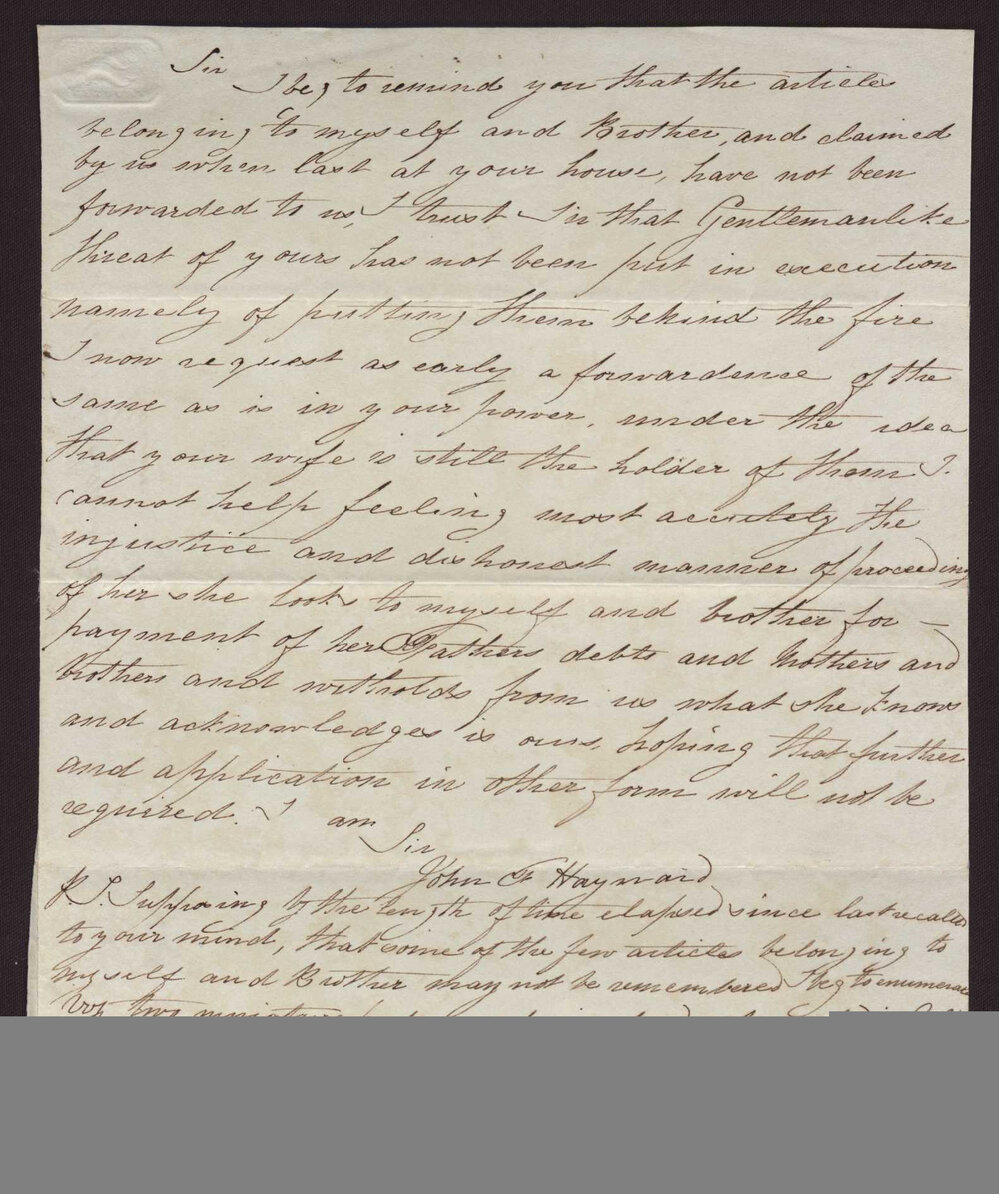 Sir
I beg to remind you that the article
belonging to myself and Brother, and claimed
by us when last at your house, have not been
forwarded to us, I trust Sir that Gentlemanlike
threat of yours has not been put in execution
namely of putting them behind the fire
I now request as early a forwardence of the
same as is in your power, under the idea
that your wife is still the holder of them I.
cannot help feeling most accutely the
injustice and dishonest manner of proceeding
of her she looks to myself and brother for —
payment of her Fathers debts and Mothers and
brothers and witholds from us what she knows
and acknowledges is ours, hoping that further
and application in other form will not be
required. I am
Sir
John F Hayward
P.S. Supposing by the length of time elapsed since last recalled
to your mind, that some of the few articles belonging to
myself and Brother may not be remembered I beg to enumerate
Viz two